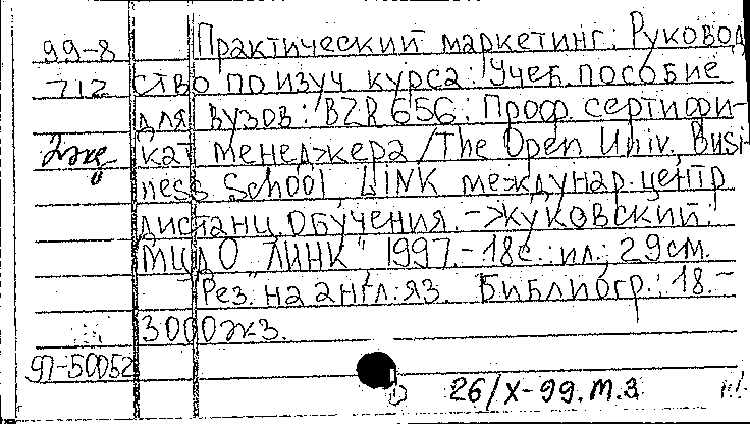 99-8 Практический маркетинг: Руковод
712 ство по изуч. курса: Учеб. пособие
для вузов: BZR 656: Проф. сертифи-
2экз кат менеджера / The Open Univ. Busi-
ness School, LINK междунар. центр
дистанц. обучения. - Жуковский:
МЦДО "ЛИНК", 1997. - 18с.: ил.; 29см.
Рез. на англ. яз. Библиогр.: 18. -
3000экз.
97-50052
26/X-99. М.З